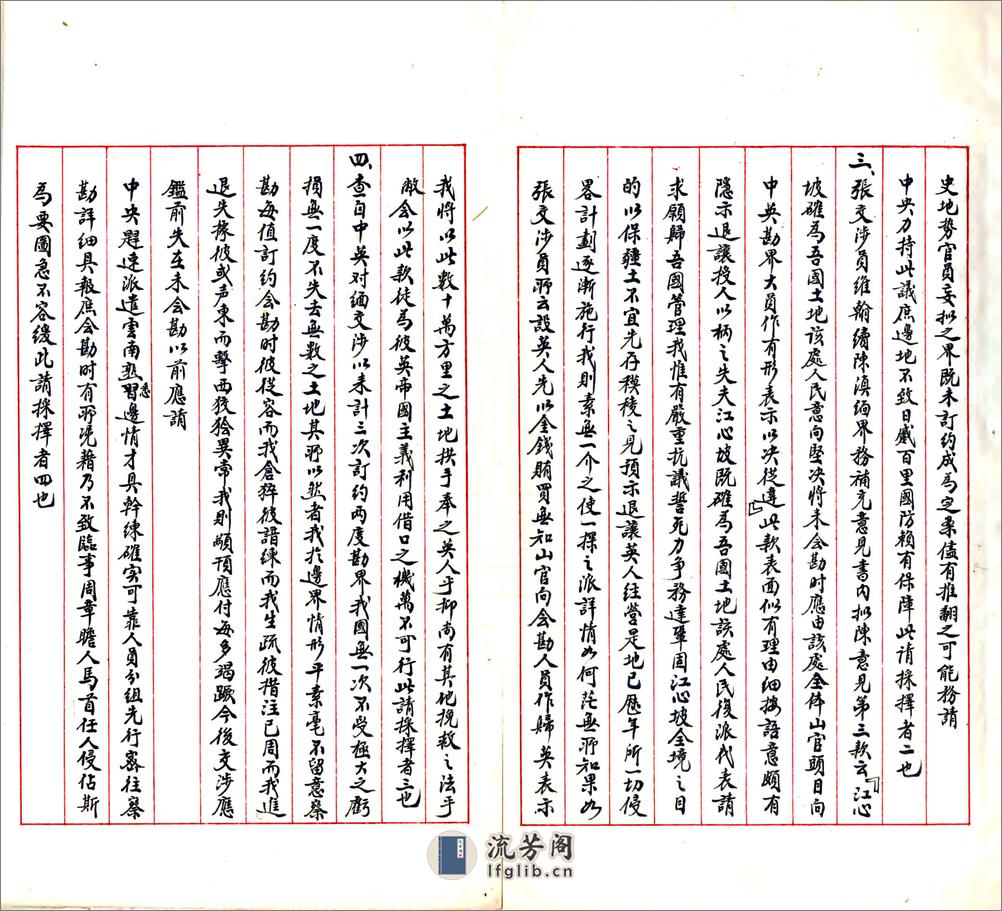 史地勢官員妄拟之界既未訂約成為定案儘有推翻之可能務請
中央力持此議庶邊地不致日蹙百里國防賴有保障此請採擇者二也
三、張交涉員維翰續陳滇緬界務補充意見書內拟陳意見第三款云「江心
坡確為吾國土地該處人民意向堅决將來会勘时應由該處全体山官頭目向
中英勘界大員作有形表示以决從違」此款表面似有理由细按語意頗有
隱示退讓授人以柄之失夫江心坡既確為吾國土地該處人民復派代表請
求願歸吾國管理我惟有嚴重抗議誓死力争務達鞏固江心坡全境之目
的以保疆土不宜先存模稜之見預示退讓英人经营是地已歷年所一切侵
畧計劃逐漸施行我則素無一介之使一探之派詳情如何茫無所知果如
張交涉員所云設英人先以金錢賄買無知山官向会勘人員作歸英表示
我將以此数十萬方里之土地拱手奉之英人乎抑尚有其他挽救之法乎
敵会以此款徒為彼英帝國主義利用借口之機萬不可行此請採擇者三也
四、查自中英对緬交涉以来計三次訂约两度勘界我國無一次不受極大之虧
損無一度不失去無数之土地其所以然者我於邊界情形平素毫不留意察
勘每值訂約会勘时彼從容而我倉猝彼諳練而我生疏彼措注已周而我進
退失據彼或声東而擊西狡獪異常我則顢頇應付每多竭蹶今後交涉應
鑑前失在未会勘以前應請
中央趕速派遣雲南熟悉習邊情才具幹練確实可靠人員分組先行密往察
勘詳细具報庶会勘时有所凭藉乃不致臨事周章瞻人馬首任人侵佔斯
為要圖急不容缓此請採擇者四也
流芳阁
lfglib.cn